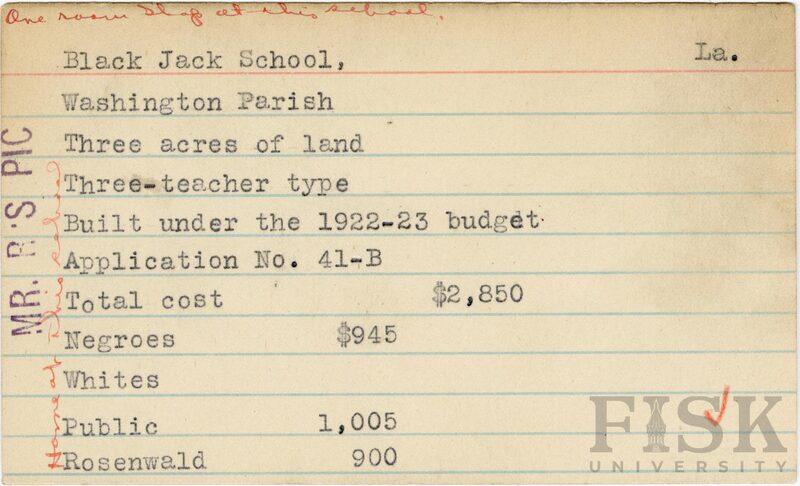 One room Shop at this school.
Black Jack School, La.
Washington Parish
Three acres of land
Three-teacher type
Built under the 1922-23 budget
Application No. 41-B
Total cost $2,850
Negroes $945
Whites
Public 1,005
Rosenwald 900
MR. R'S PIC
FISK
UNIVERSITY